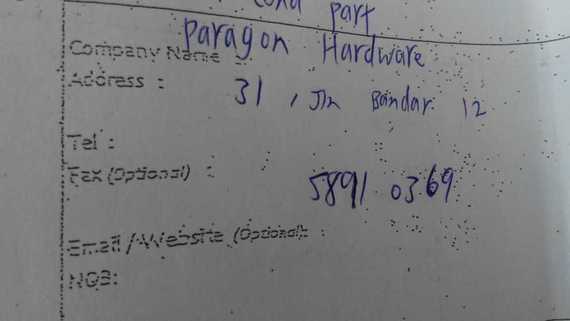 cond part
Paragon Hardware
Company Name :
Address : 31, Jln Bandar 12
Tel :
Fax (Optional) : 5891 0369
Email/Website (Optional):
NOB: